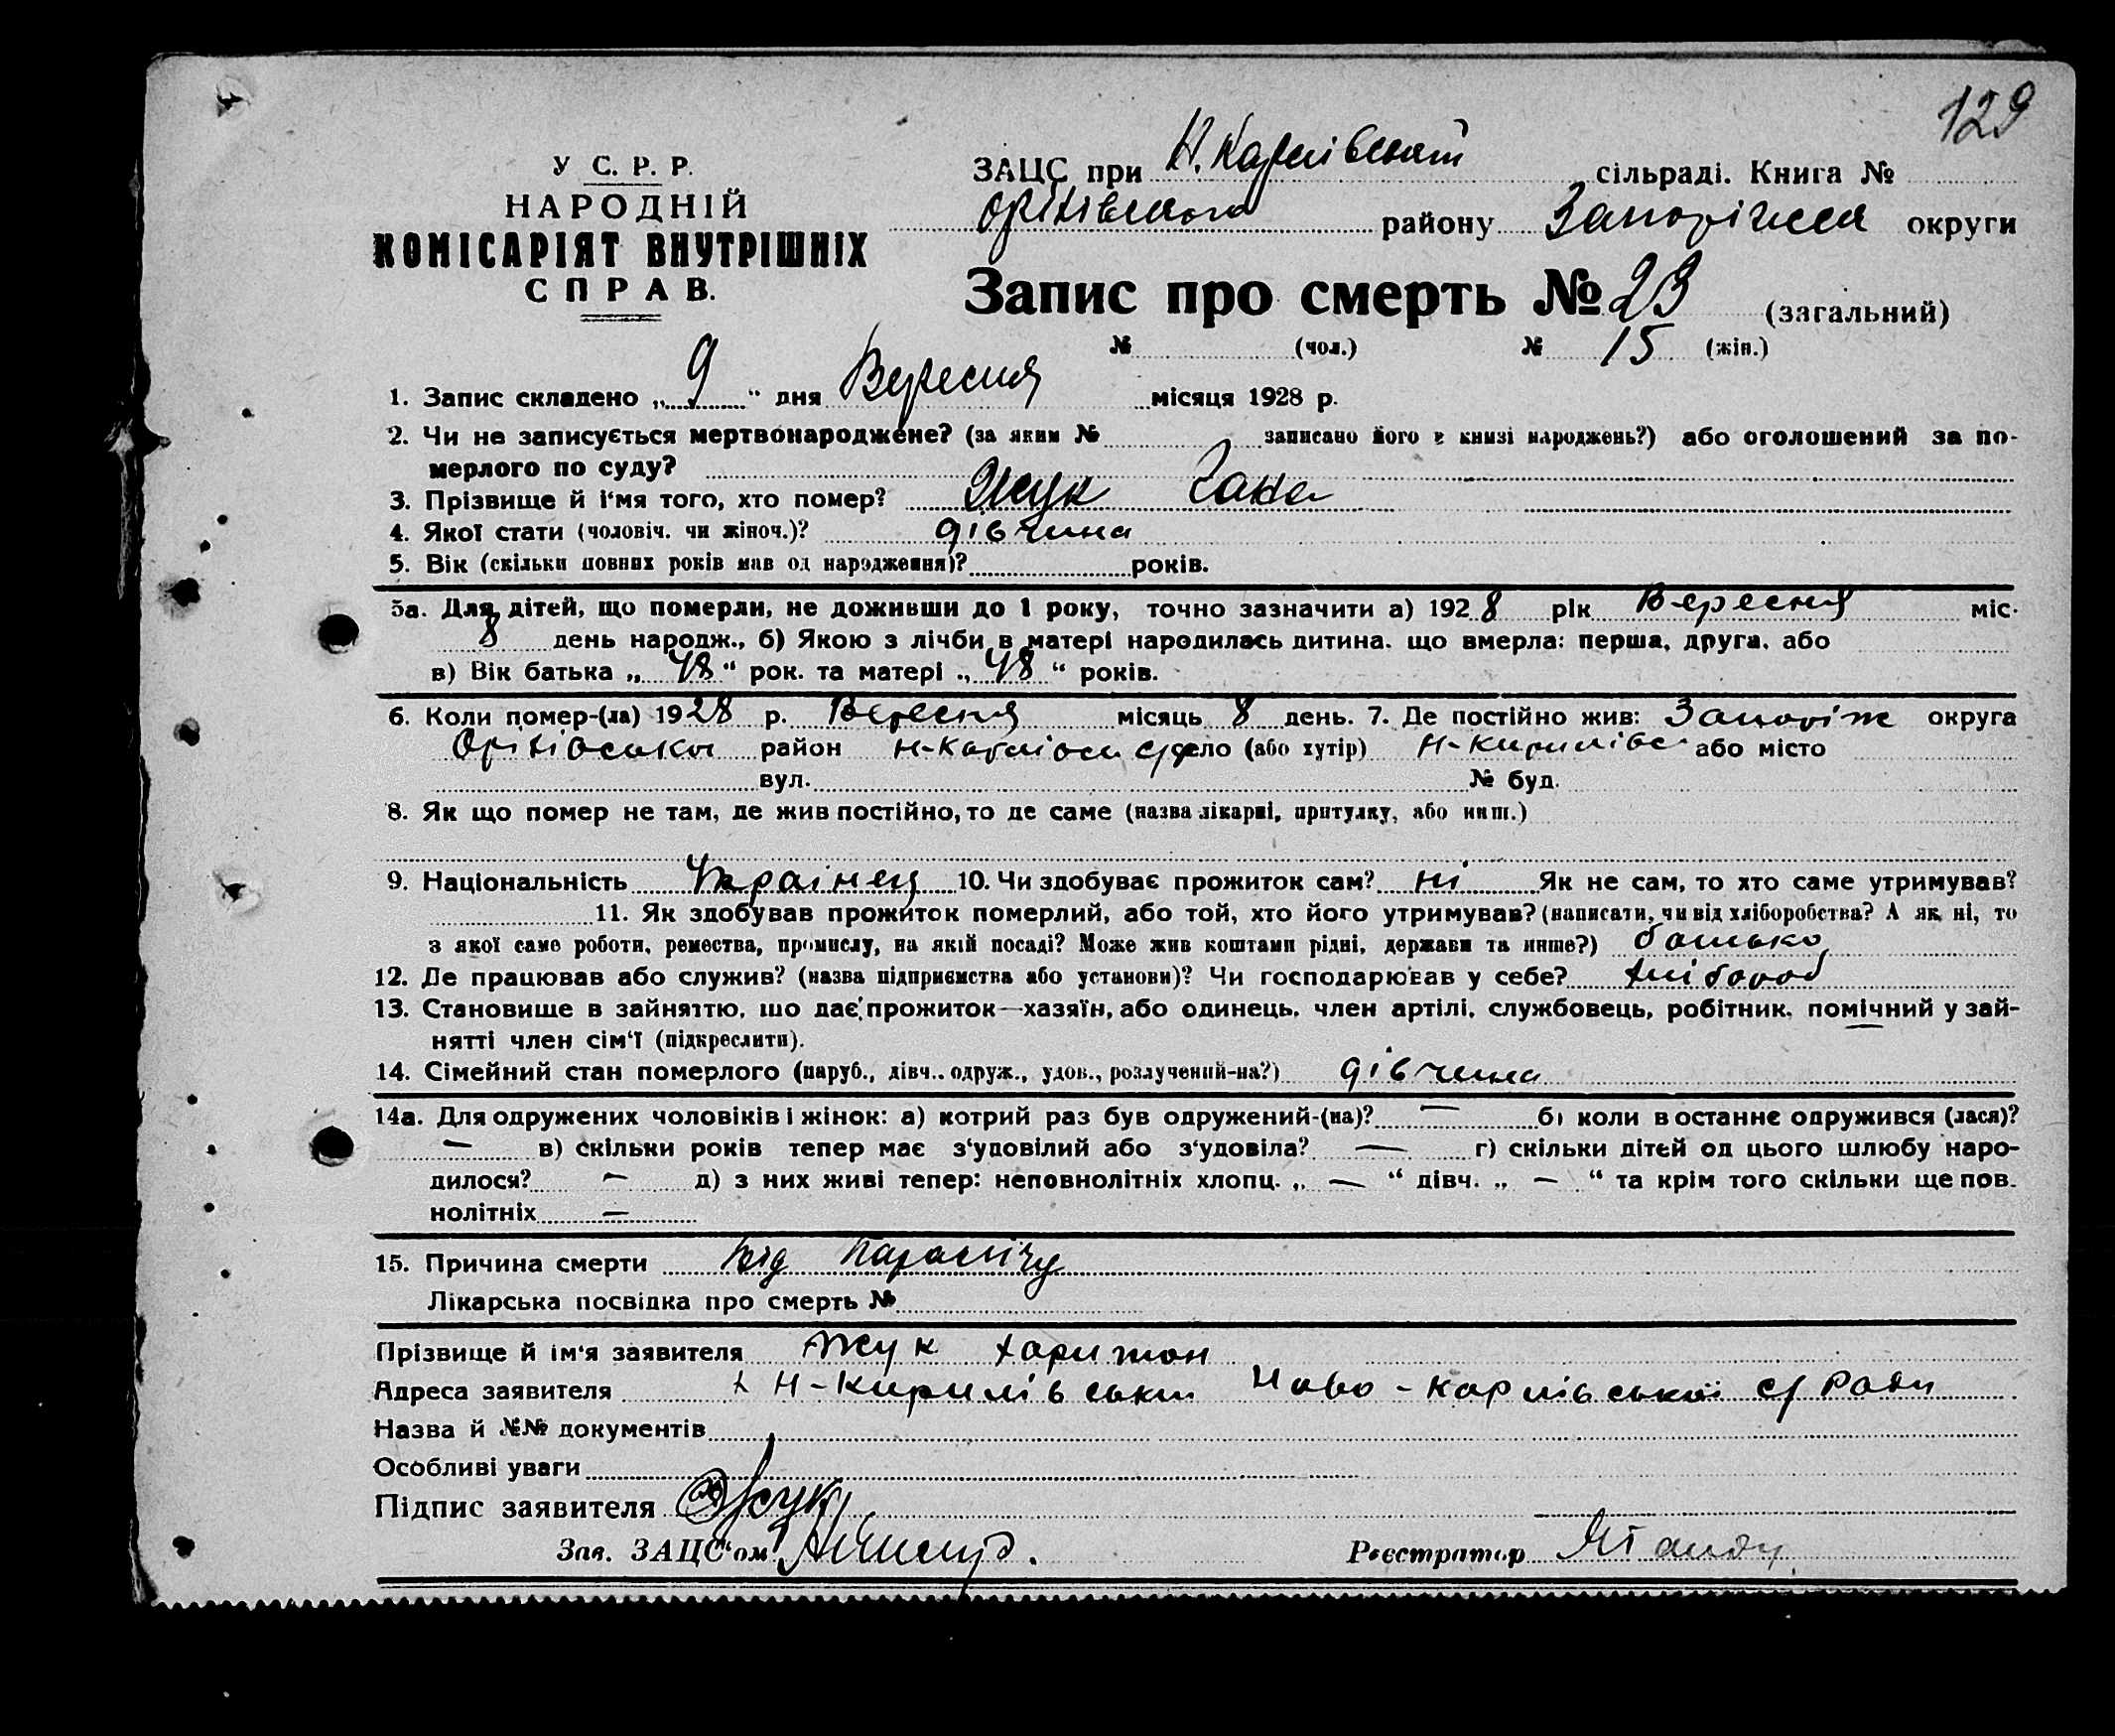 129
У С. Р. Р.
НАРОДНІЙ
КОМІСАРІЯТ ВНУТРІШНІХ
СПРАВ.
ЗАЦС при Н. Карлівський сільраді. Книга №
Оріхівського району Запоріжжя округи
Запис про смерть № 23 (загальний)
№ (чол.) № 15 (жін.)
1. Запис складено „ 9 “ дня Вересня місяця 1928 р.
2. Чи не записується мертвонароджене? (за яким № записано його в книзі народжень?) або оголошений за по-
мерлого по суду?
3. Прізвище й і'мя того, хто помер? Жук
4. Якої стати (чоловіч. чи жіноч.)? дівчина
5. Вік (скільки повних років мав од народження)? років.
5а. Для дітей, що померли, не доживши до 1 року, точно зазначити а) 1928 рік Вересня міс.
8 день народж., б) Якою з лічби в матері народилась дитина. що вмерла: перша, друга, або
в) Вік батька „ 48 “ рок. та матері „ 48 “ років.
6. Коли помер-(ла) 1928 р. Вересня місяць 8 день. 7. Де постійно жив: Запоріж округа
Оріхівський район Н-Карлівськ с/р село (або хутір) Н-Кирилівс або місто
вул. № буд.
8. Як що помер не там, де жив постійно, то де саме (назва лікарні, притулку, або инш.)
9. Національність Українец 10. Чи здобуває прожиток сам? ні Як не сам, то хто саме утримував?
11. Як здобував прожиток померлий, або той, хто його утримував? (написати, чи від хліборобства? А як ні, то
з якої саме роботи, ремества, промислу, на якій посаді? Може жив коштами рідні, держави та инше?) батько
12. Де працював або служив? (назва підприємства або установи)? Чи господарював у себе? хлібороб
13. Становище в зайняттю, що дає прожиток—хазяїн, або одинець, член артілі, службовець, робітник, помічний у зай-
нятті член сім'ї (підкреслити).
14. Сімейний стан померлого (паруб., дівч., одруж., удов., розлучений-на?) дівчина
14а. Для одружених чоловіків і жінок: а) котрий раз був одружений-(на)? — б) коли в останнє одружився (лася)?
— в) скільки років тепер має з'удовілий або з'удовіла? — г) скільки дітей од цього шлюбу наро-
дилося? — д) з них живі тепер: неповнолітніх хлопц. „ — “ дівч. „ — “ та крім того скільки ще пов.
нолітніх —
15. Причина смерти від Паралічу
Лікарська посвідка про смерть №
Прізвище й ім'я заявителя Жук Харитон
Адреса заявителя х Н-Кирилівськи Ново-Карлівської с/Ради
Назва й №№ документів
Особливі уваги
Підпис заявителя Жук
Зав. ЗАЦС'ом
Реєстратор